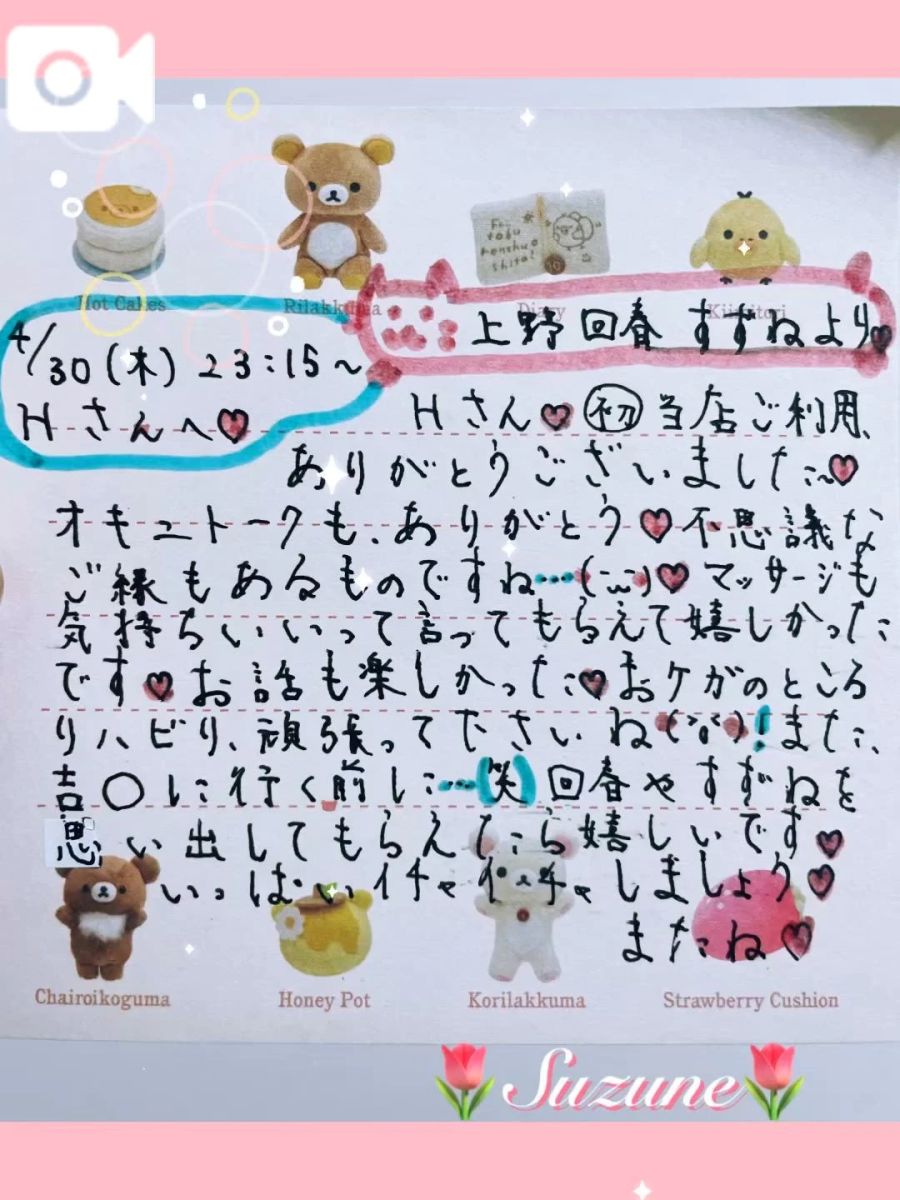 Hot Cakes
Rilakkuma
Diary
Kiiroitori
4/30(木) 23:15〜
Hさんへ♥
上野回春 すずねより♥
Hさん♥㊞初 当店ご利用、
ありがとうございました〜♥
オキニトークも、ありがとう♥不思議な
ご縁もあるものですね…(¨)♥マッサージも
気持ちいいって言ってもらえて嬉しかった
です♥お話も楽しかった♥おケガのところ
リハビリ、頑張って下さいね!また、
吉〇に行く前に…(笑)回春やすずねを
思い出してもらえたら嬉しいです♥
いっぱいイチャイチャしましょう♥
またね♥
Chairoikoguma
Honey Pot
Korilakkuma
Strawberry Cushion
Suzune